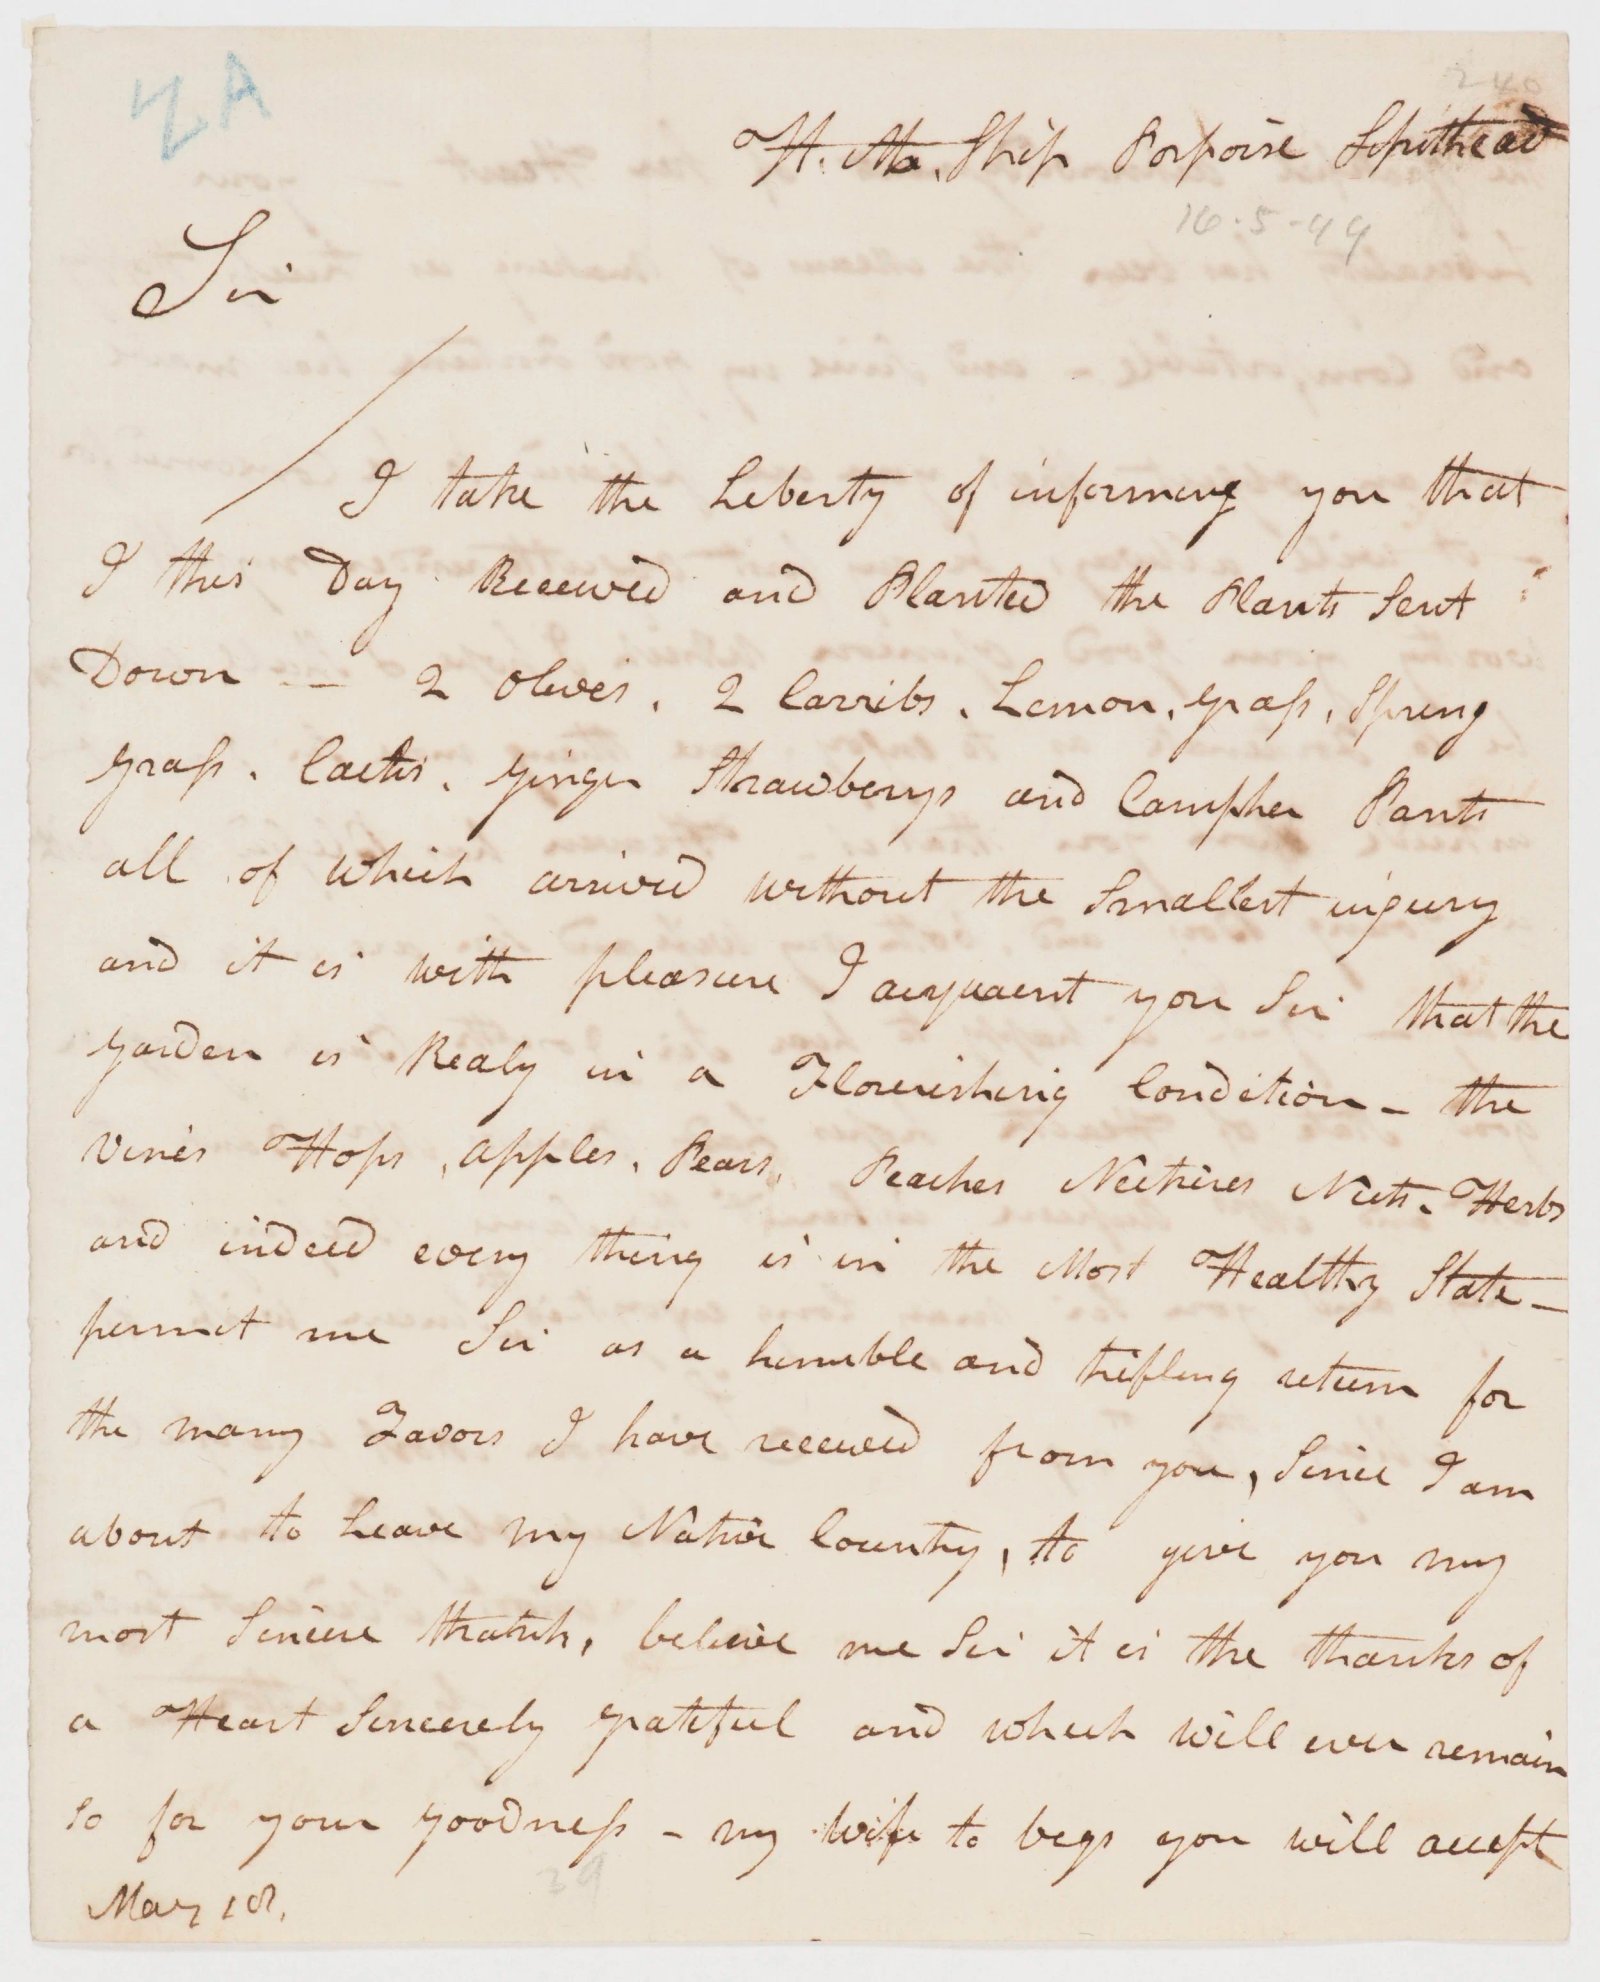 ZA
240
H. Ma. Ship Porpoise Spithead
16-5-99
Sir
I take the Leberty of informing you that
I this Day Received and Planted the Plants Sent
Down — 2 Olives, 2 Carribs, Lemon, grass, Spring
grass. Cactis. ginger Strawberrys and Campher Pants
all of which arrived without the Smallest injury
and it is with pleasure I acquaent you Sir that the
garden is Realy in a Flourishing Condition - the
Vines Hops, apples, Pears, Peaches Nectrines Nuts. Herbs
and indeed every thing is in the Most Healthy State -
permit me Sir as a humble and trifling return for
the many Favors I have received from you, Since I am
about to Leave my Native Country, to give you my
most Sincere thanks, believe me Sir it is the thanks of
a Heart Sincerely grateful and which will ever remain
so for your goodness - my wife to begs you will accept
39
May 18.